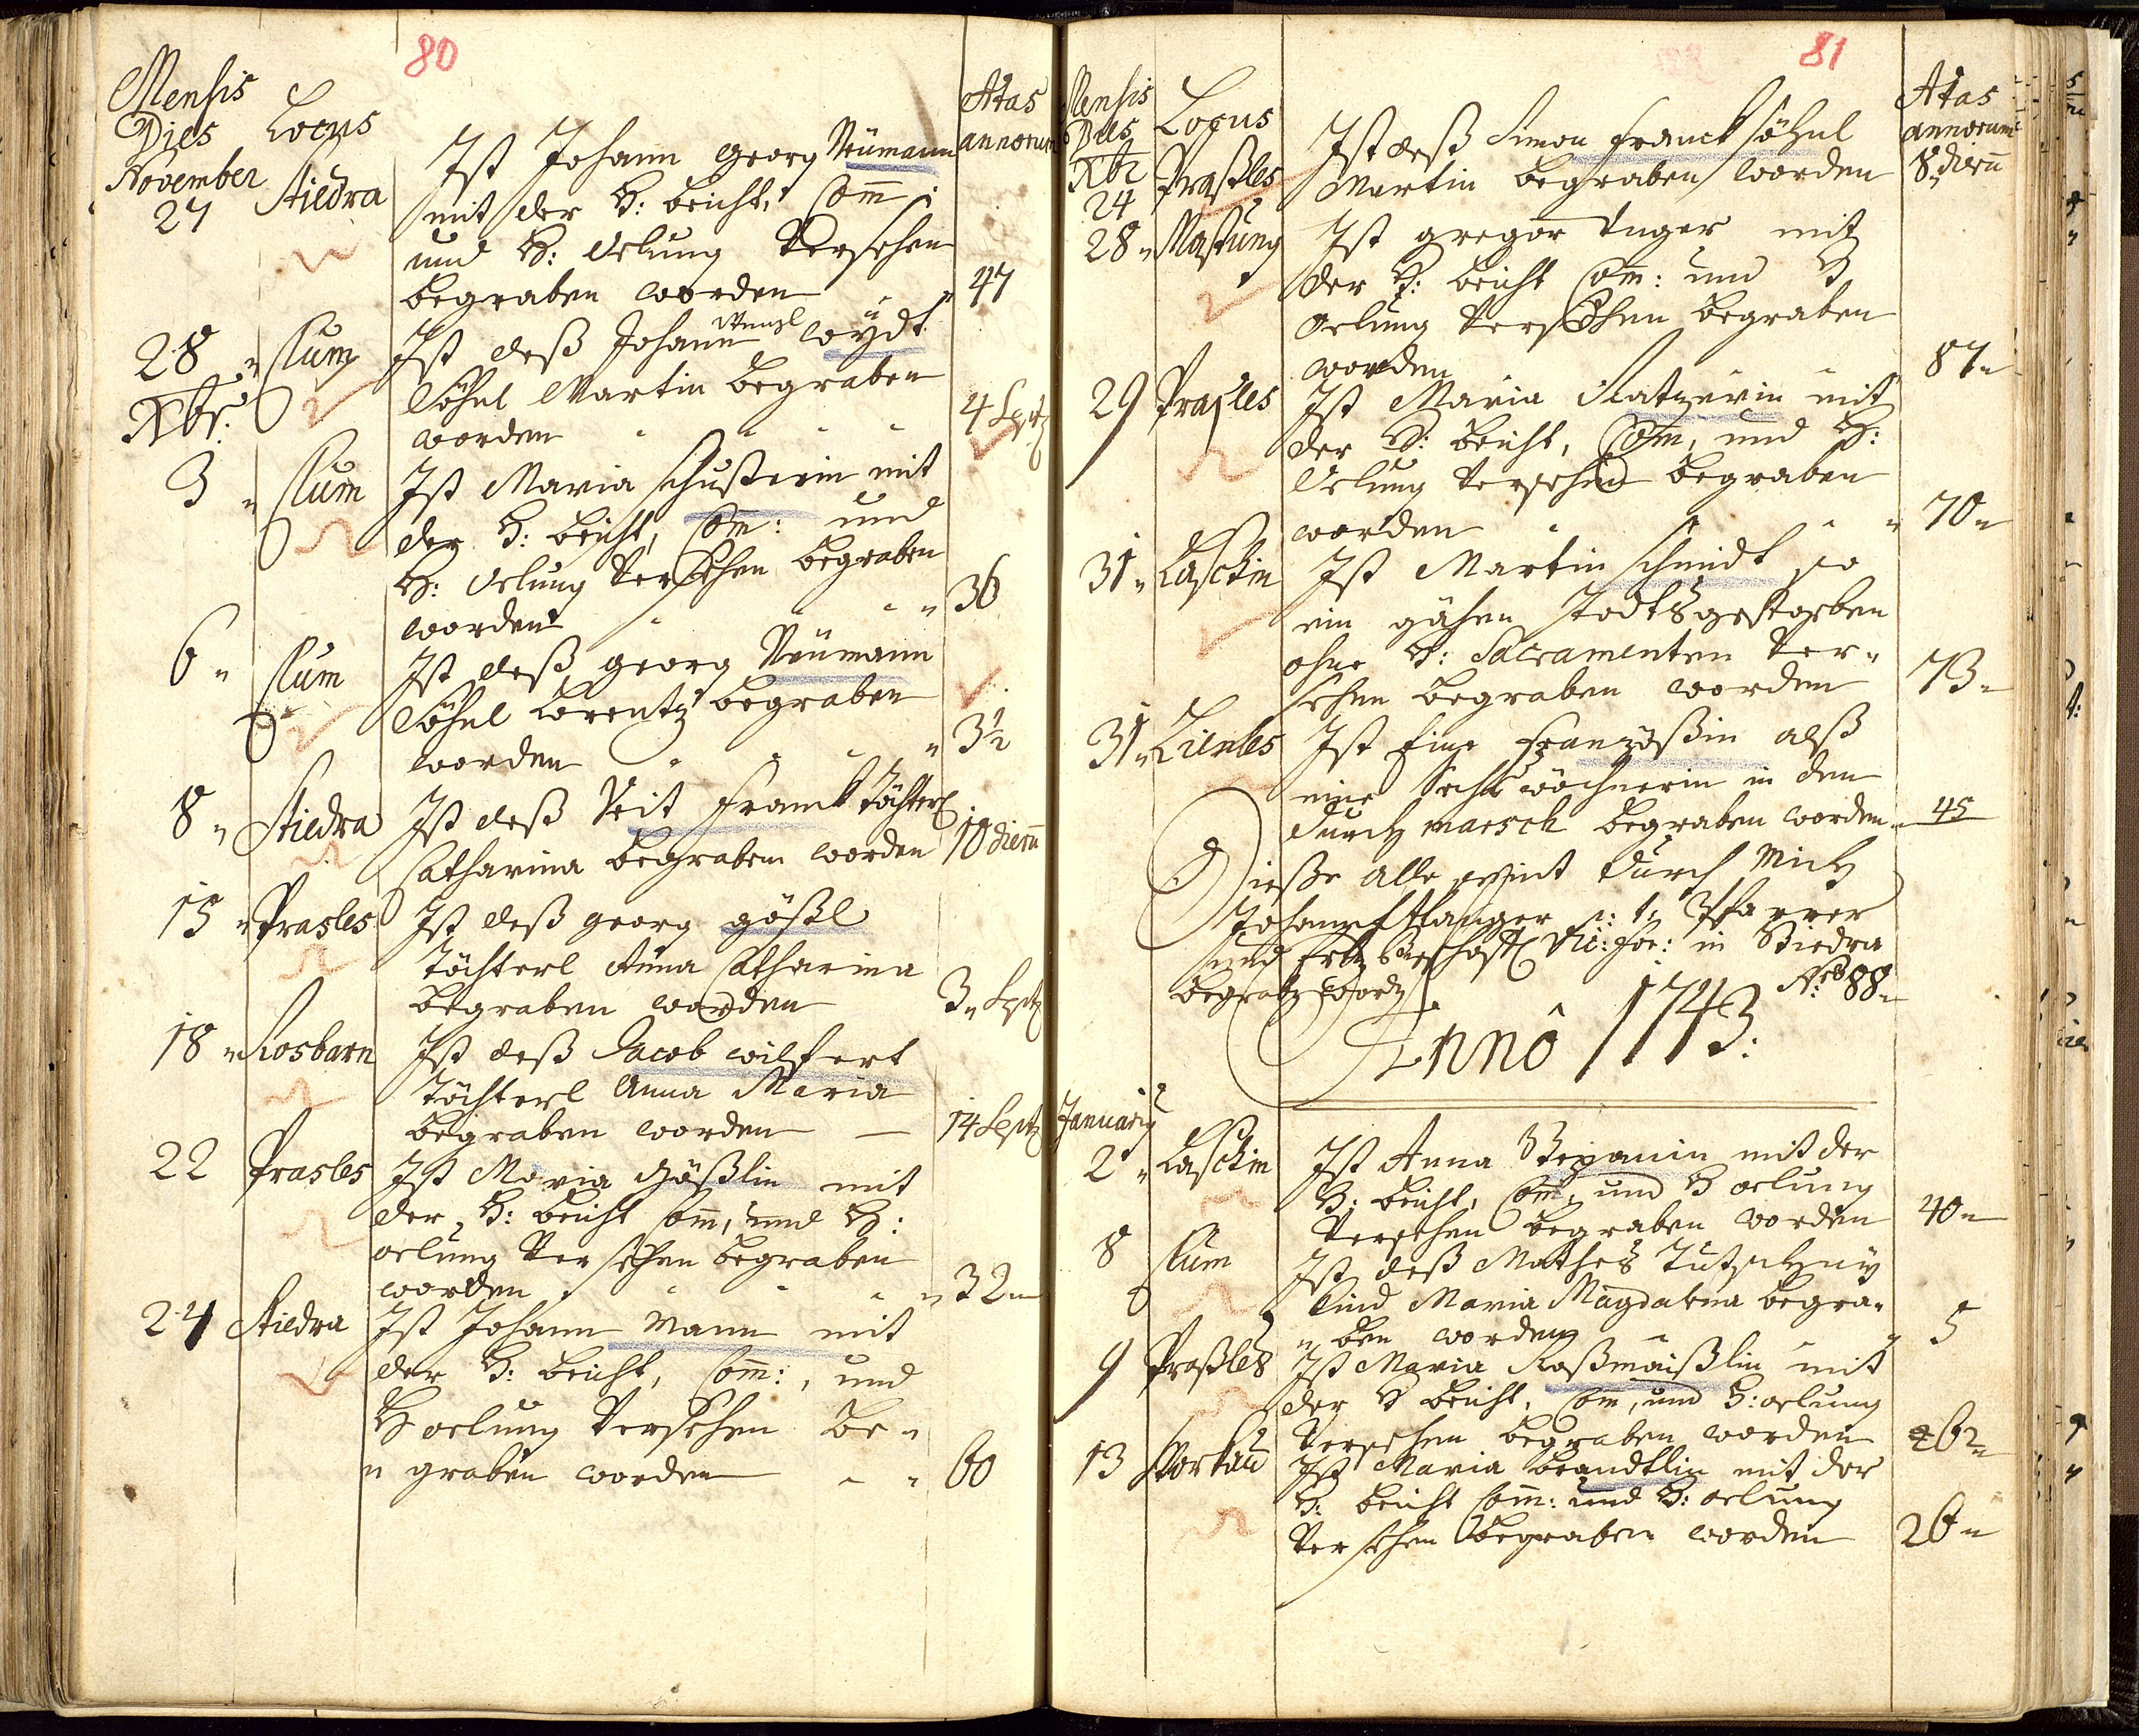 80
Mensis
Dies Locus Ætas
November Stiedra Ist Johann Georg Neümann annorum
27 mit der H: beicht, Com̄:
und H: Oelung Versehen
begraben worden 47
28 Clum Ist deß Johann Wenzl Weydt
Xbr: Söhnl Martin begraben
worden 4 Sept
3 Clum Ist Maria Schusterin mit
der H: beicht, Com̄: und
H: Oelung Versehen begraben
worden 36
6 Clum Ist deß Georg Neümann
Söhnl Lorentz begraben
worden 3½
8 Stiedra Ist deß Veit Franck Töchterl
Catharina begraben worden 10 dierū
15 Prasles Ist deß Georg Gößl
Töchterl Anna Catharina
begraben worden 3 Sept
18 Kosbarn Ist deß Jacob Wilfert
Töchterl Anna Maria
begraben worden 14 Sept
22 Prasles Ist Maria Gößlin mit
der H: beicht Com̄, und H:
oelung Versehen begraben
worden 32
24 Stiedra Ist Johann Mann mit
der H: beicht, Com̄:, und
H oelung Versehen be-
graben worden 60
81
Mensis
Dies Locus Ætas
annorum
Xbr Praßles Ist deß Simon Franck Söhnl
24 Martin begraben worden 8 dierū
28 Mastung Ist Gregor Unger mit
der H: beicht Com̄: und H
Oelung Versehen begraben
worden 87
29 Prasles Ist Maria Ratzerin mit
der H: beicht, Com̄, und H:
Oelung Versehen begraben
worden 70
31 Laschin Ist Martin Schmidt so
ein gähen Todts gestorben
ohne H: Sacramenten Ver-
sehen begraben worden 73
31 Lienles Ist Eine Französin alß
eine Sechswöchnerin in den
durch marsch begraben worden 45
Dieße alle seint durch Mich
Johann Pfarrer
und Vic: For: in Stiedra
begraben worden Nro 88
Annô 1743:
Januarij
2 Laschin Ist Anna Stepanin mit der
H: beicht, Com̄, und H oelung
Versehen begraben worden 40
8 Clum Ist deß Mathes Tutschny
Kind Maria Magdalena begra-
ben worden 5
9 Praßles Ist Maria Roßmeißlin mit
der H beicht, Com̄, und H: oelung
Versehen begraben worden 62
13 Storkau Ist Maria Brandtlin mit der
H: beicht Com̄: und H: oelung
Versehen begraben worden 26